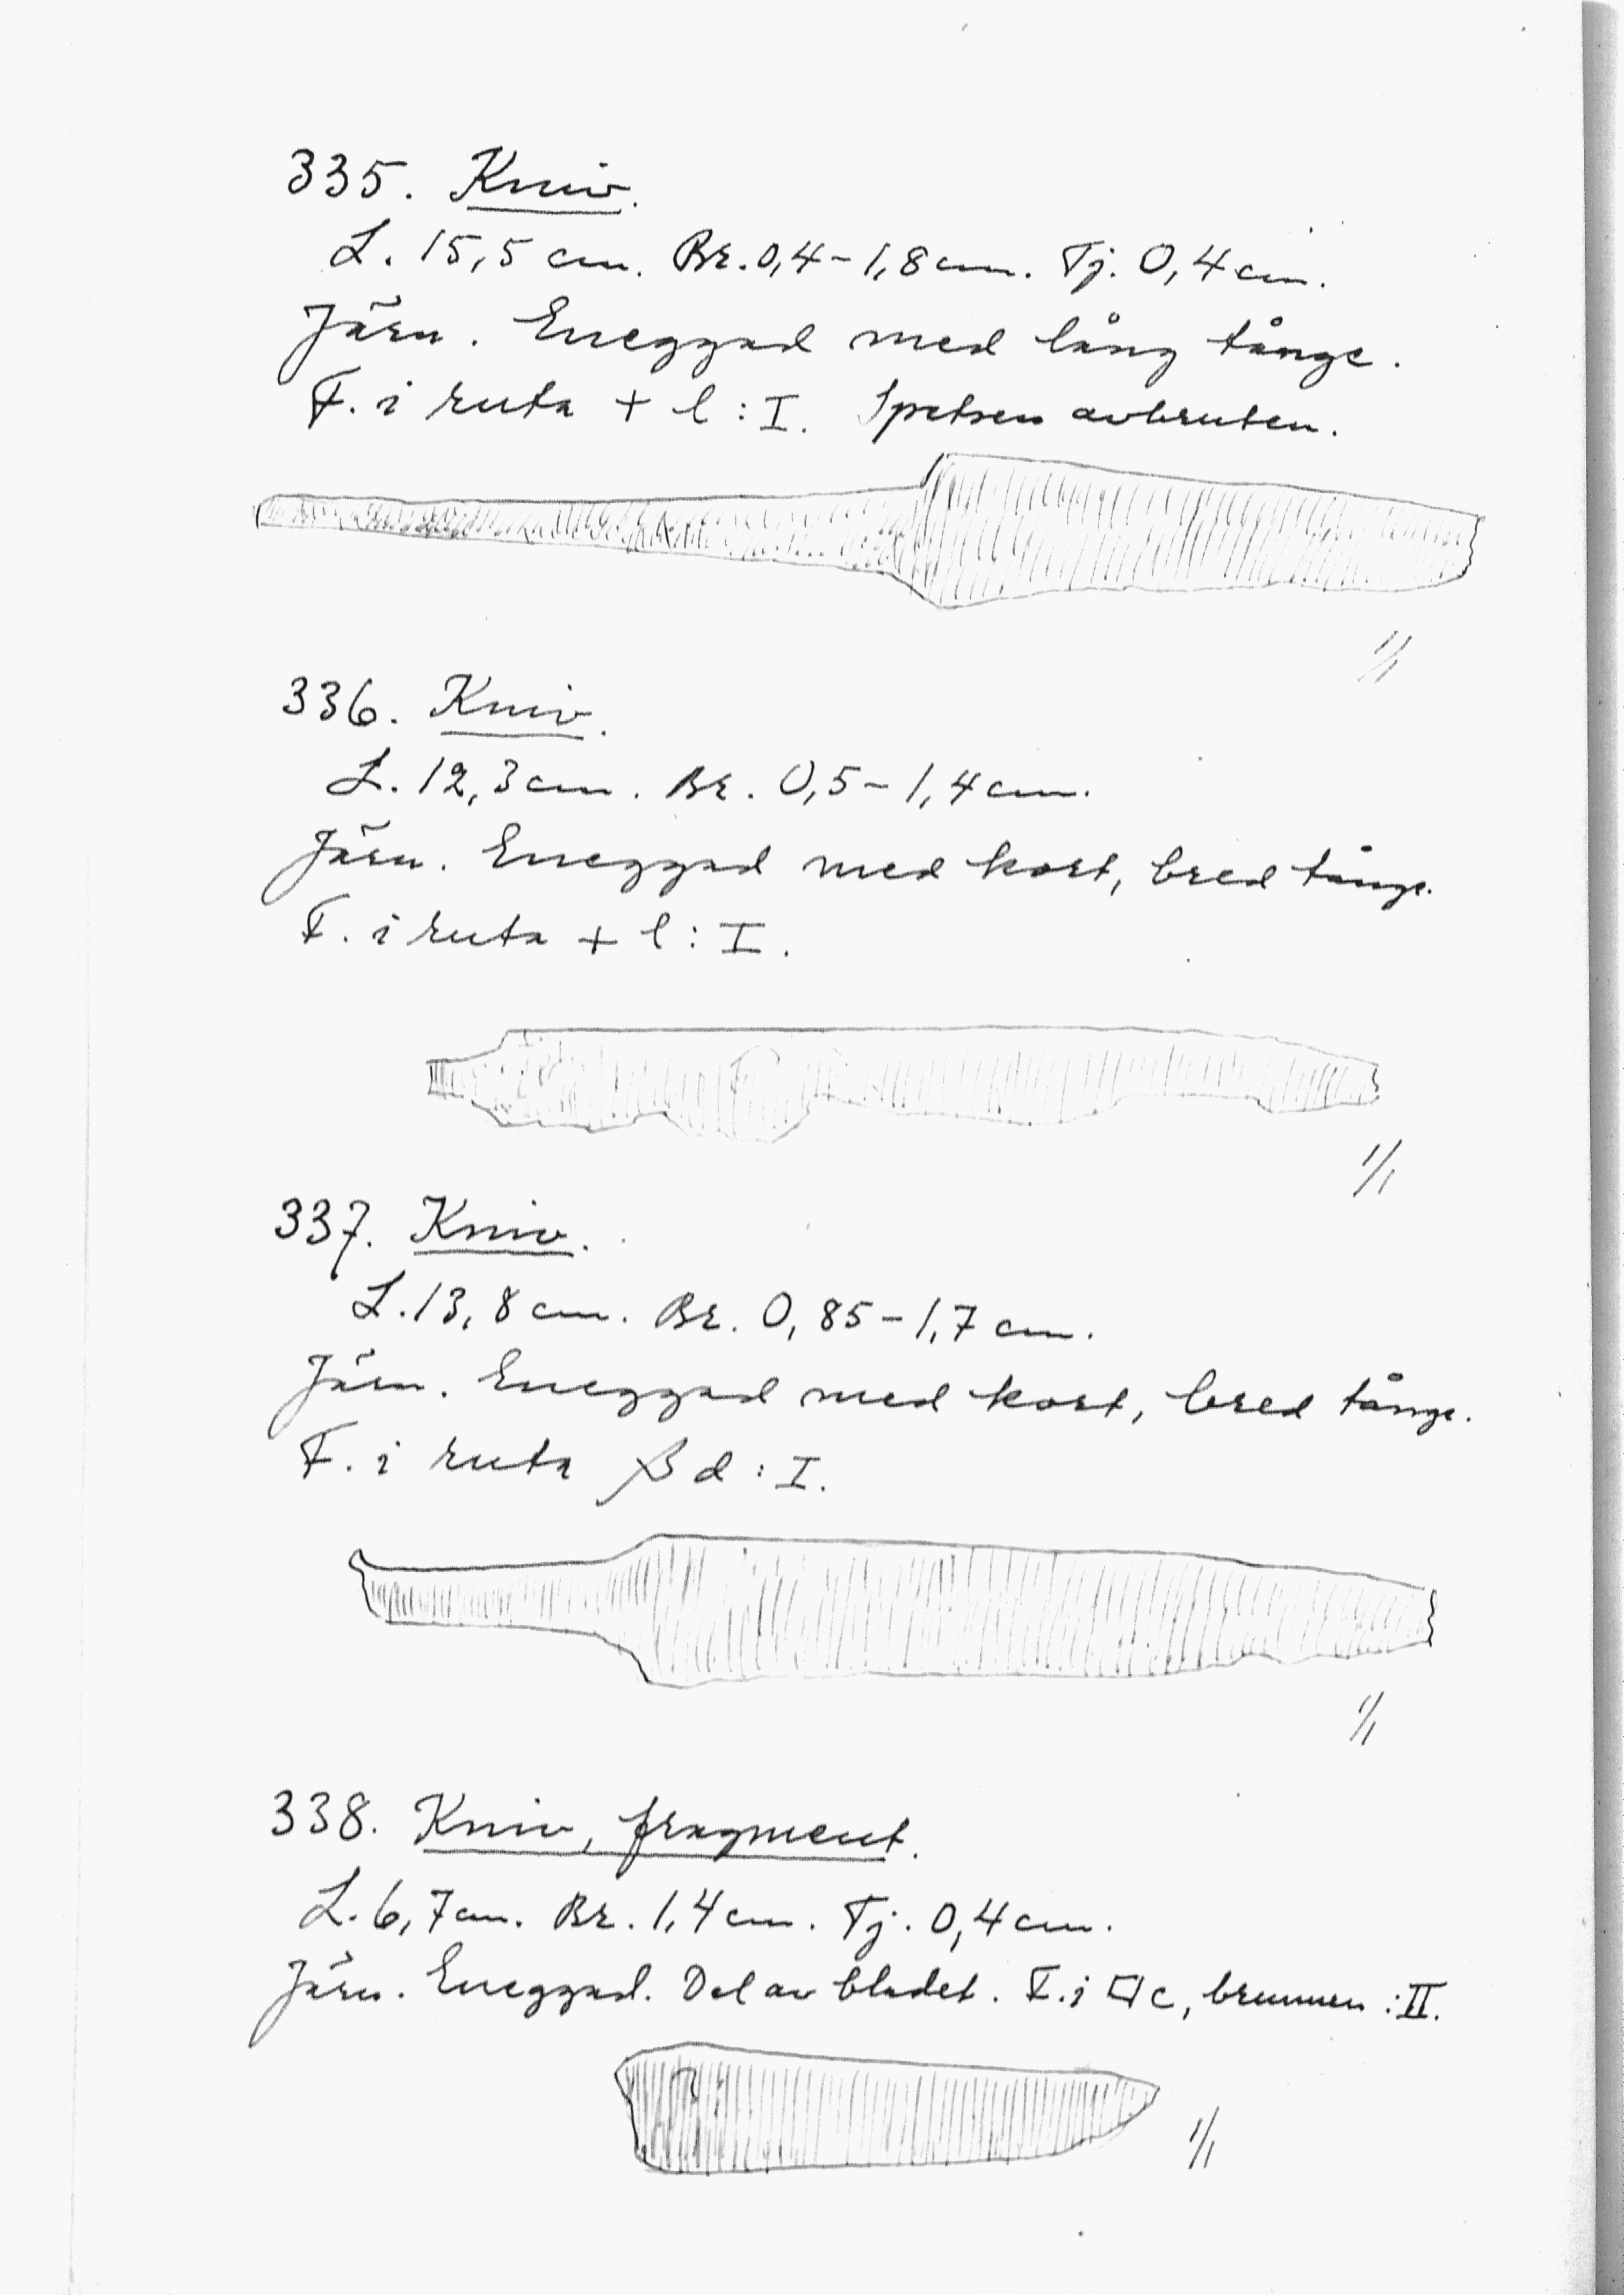 335. Kniv.
L. 15,5 cm. Br. 0,4-1,8 cm. Tj. 0,4 cm.
Järn. Eneggad med lång tånge.
F. i ruta + l : I. Spetsen avbruten.
1/1
336. Kniv.
L. 12,3 cm. Br. 0,5-1,4 cm.
Järn. Eneggad med kort, bred tånge.
F. i ruta + l : I.
1/1
337. Kniv.
L. 13,8 cm. Br. 0,85-1,7 cm.
Järn. Eneggad med kort, bred tånge.
F. i ruta β d : I.
1/1
338. Kniv, fragment.
L. 6,7 cm. Br. 1,4 cm. Tj. 0,4 cm.
Järn. Eneggad. Del av bladet. F. i □ c, brunnen : II.
1/1